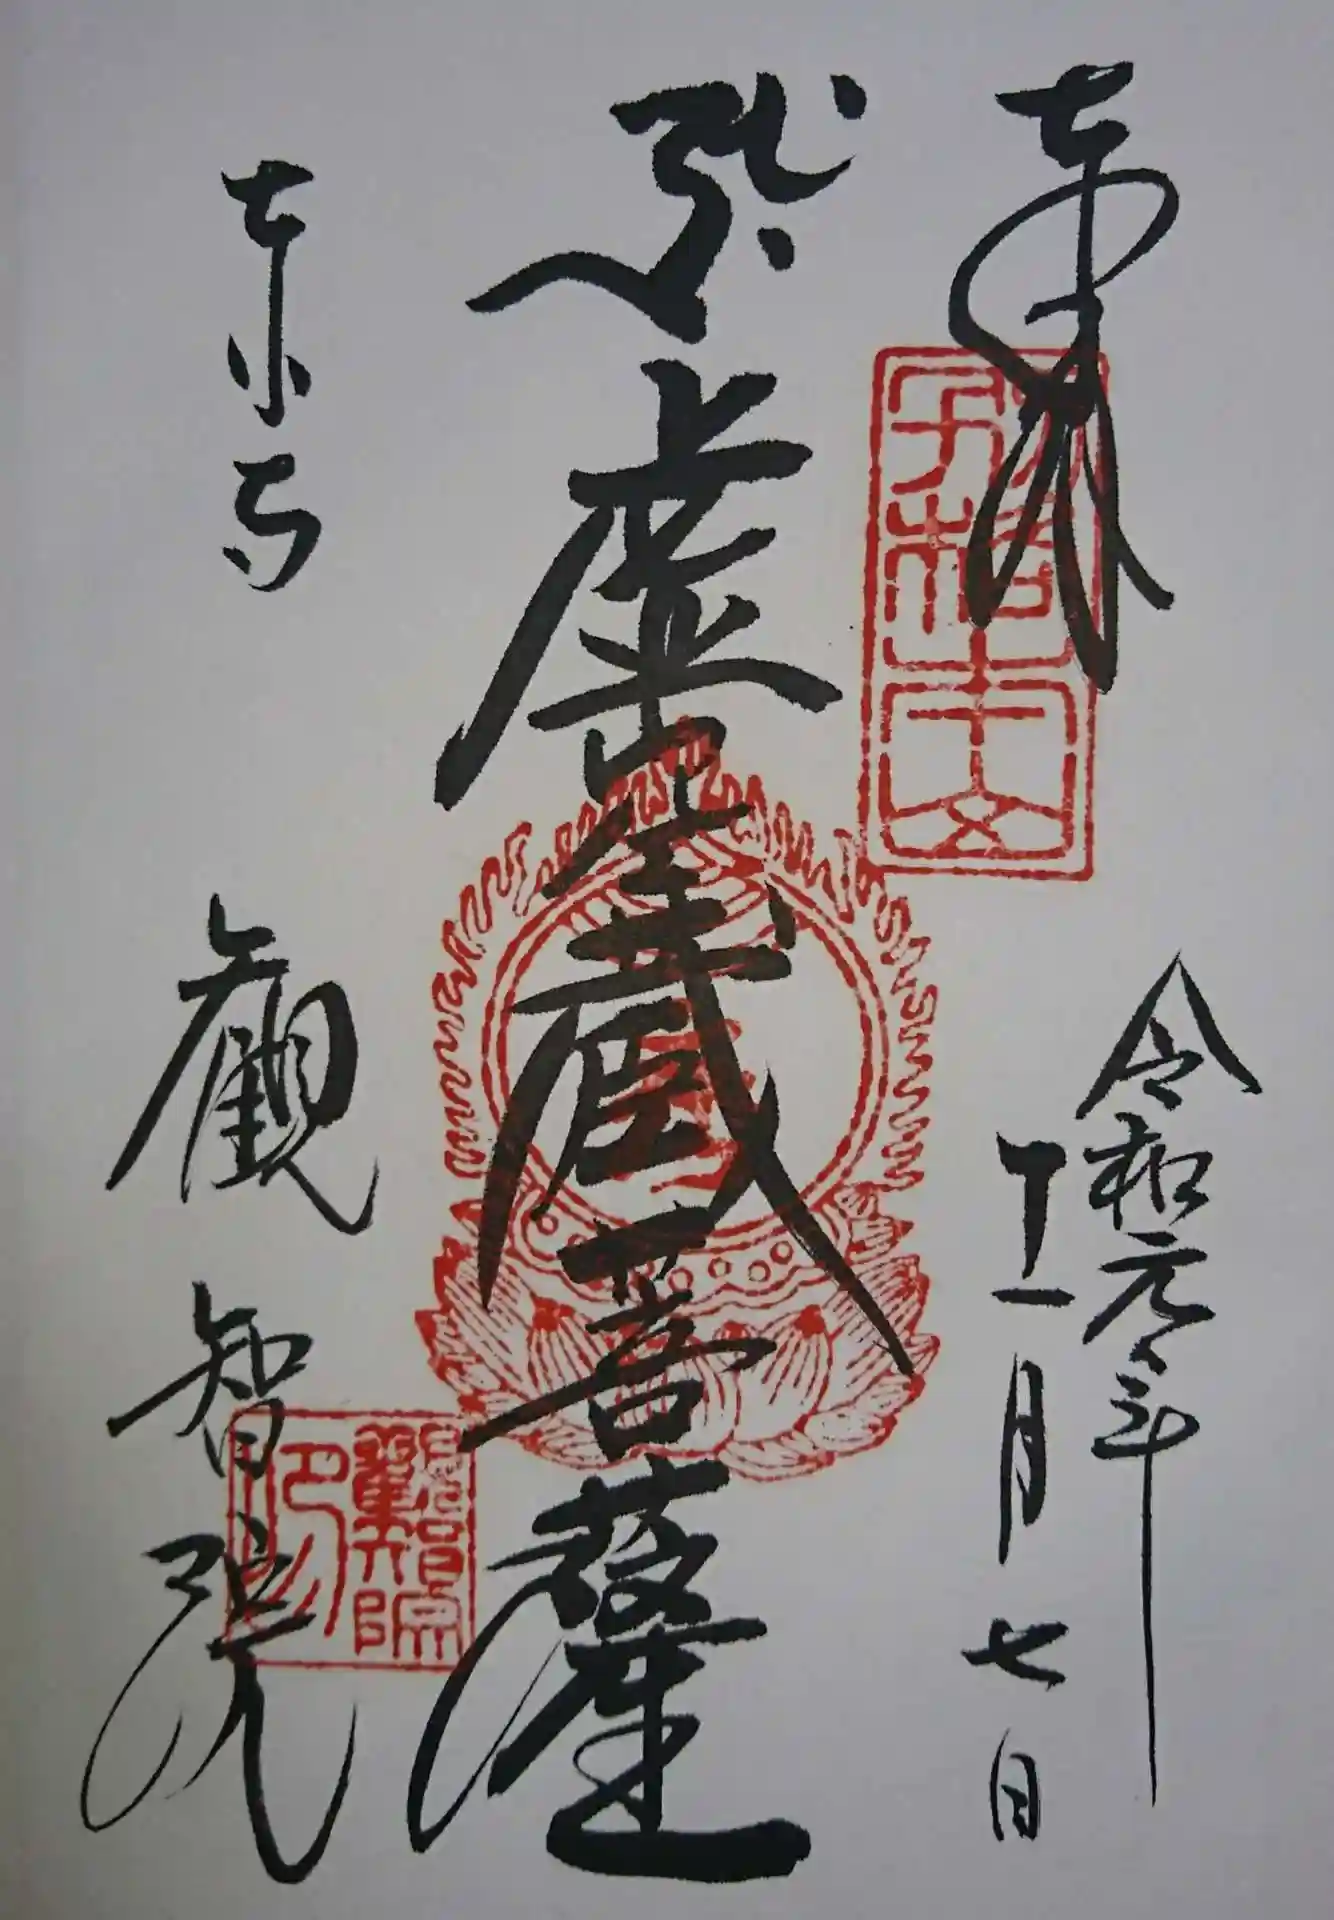 奉拝
令和元年
十一月七日
虚空蔵菩薩
東寺
観智院
観智院印